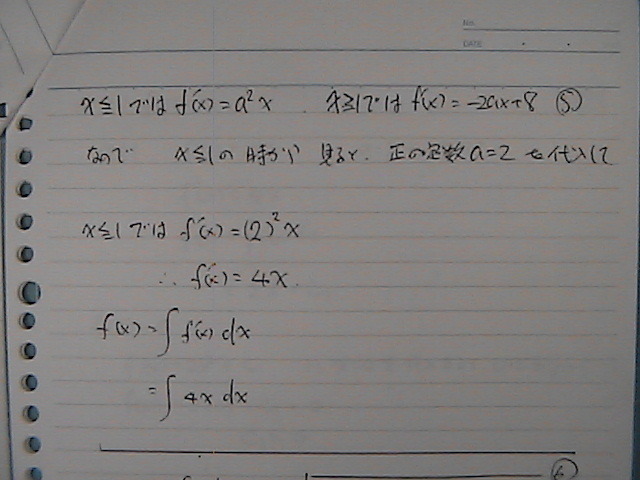 No.
DATE
x≦1では f'(x)=a²x x≧1では f'(x)=-2ax+8 ⑤
なので x≦1の時から見ると、正の定数a=2を代入して
x≦1では f'(x)=(2)²x
∴ f'(x)=4x.
f(x)=∫f'(x)dx
=∫4x dx
⑥